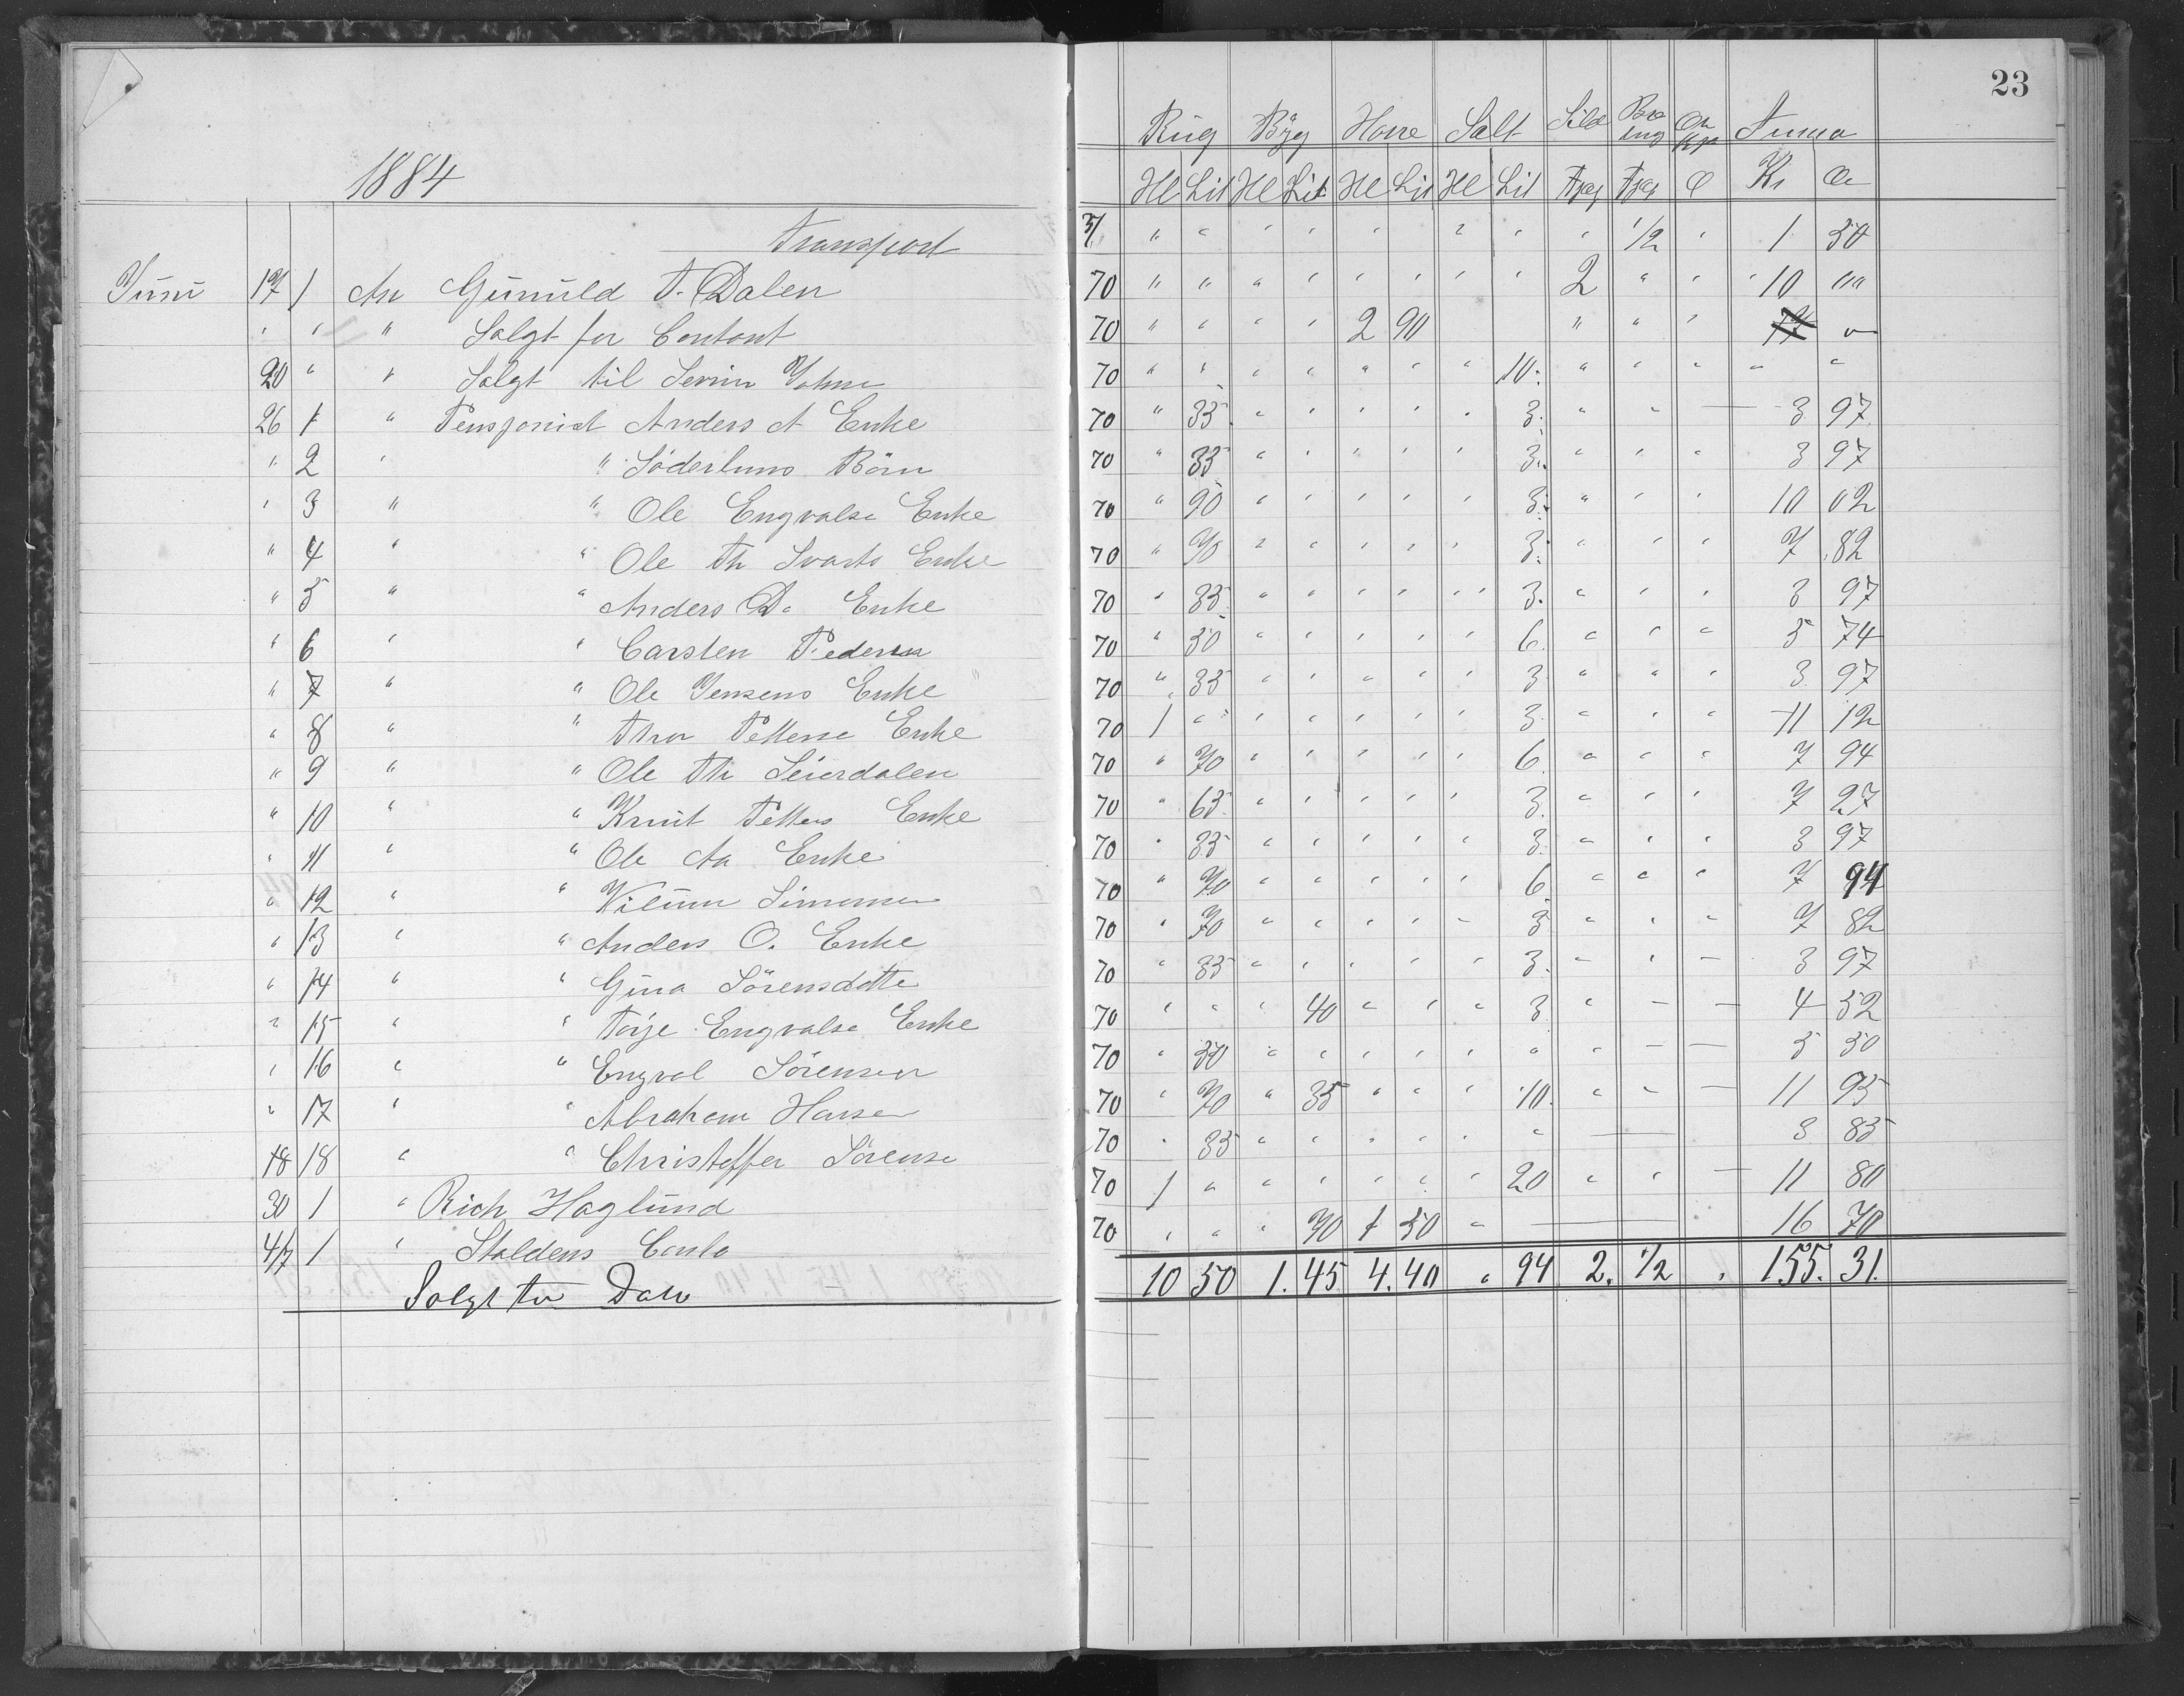 23
1884
Rug Byg Havre Salt Sild Summa
Hl Lit Hl Lit Hl Lit Hl Lit Kr Øre
Transport " " " " " " " " 1/2 " 1 50
Juni 17 1 An Gunuld T. Dalen 70 " " " " " " " " 2 " " 10 ""
" " " Salgt for Contant 70 " " " " 2 90 " " "
20 " " Salgt til 70 " " " " " " " 10 " " " " "
26 1 " Pensjonist Anders A Enke 70 " 35 " " " " " 3 " " — 3 97
" 2 " " Söderlunds Börn 70 " 35 " " " " " 3 " " " 3 97
" 3 " " Ole Engvalse Enke 70 " 90 " " " " " 3 " " " 10 02
" 4 " " Ole Th Svarts Enke 70 " 70 " " " " " 3 " " " 7 82
" 5 " " Anders D. Enke 70 " 35 " " " " " 3 " " " 3 97
" 6 " " Carsten Pedersen 70 " 50 " " " " " 6 " " " 5 74
" 7 " " Ole Jensens Enke 70 " 35 " " " " " 3 " " " 3 97
" 8 " " Thor Pettersе Enke 70 1 " " " " " " 3 " " " 11 12
" 9 " " Ole Th Seierdalen 70 " 70 " " " " " 6 " " " 7 94
" 10 " " Knut Petters Enke 70 " 65 " " " " " 3 " " " 7 27
" 11 " " Ole Aa Enke 70 " 35 " " " " " 3 " " " 3 97
" 12 " " Villum Simonsen 70 " 70 " " " " " 6 " " " 7 94
" 13 " " Anders O. Enke 70 " 70 " " " " " 3 " " " 7 82
" 14 " " Gina Sörensdatte 70 " 35 " " " " " 3 " " " 3 97
" 15 " " Torje Engvalse Enke 70 " " " 40 " " " 3 " — — 4 52
" 16 " " Engval Sörensen 70 " 50 " " " " " " " — — 5 50
" 17 " " Abraham Hansen 70 " 70 " 35 " " " 10 " " — 11 95
18 18 " " Christoffer Sörense 70 " 35 " " " " " " — 3 85
30 1 " Rich Haglund 70 1 " " " " " " 20 " " — 11 80
4/7 1 " Staldens Conto 70 " " " 70 1 50 " — 16 70
Salgt 10 50 1. 45 4. 40 " 94 2. 1/2 " 155. 31.